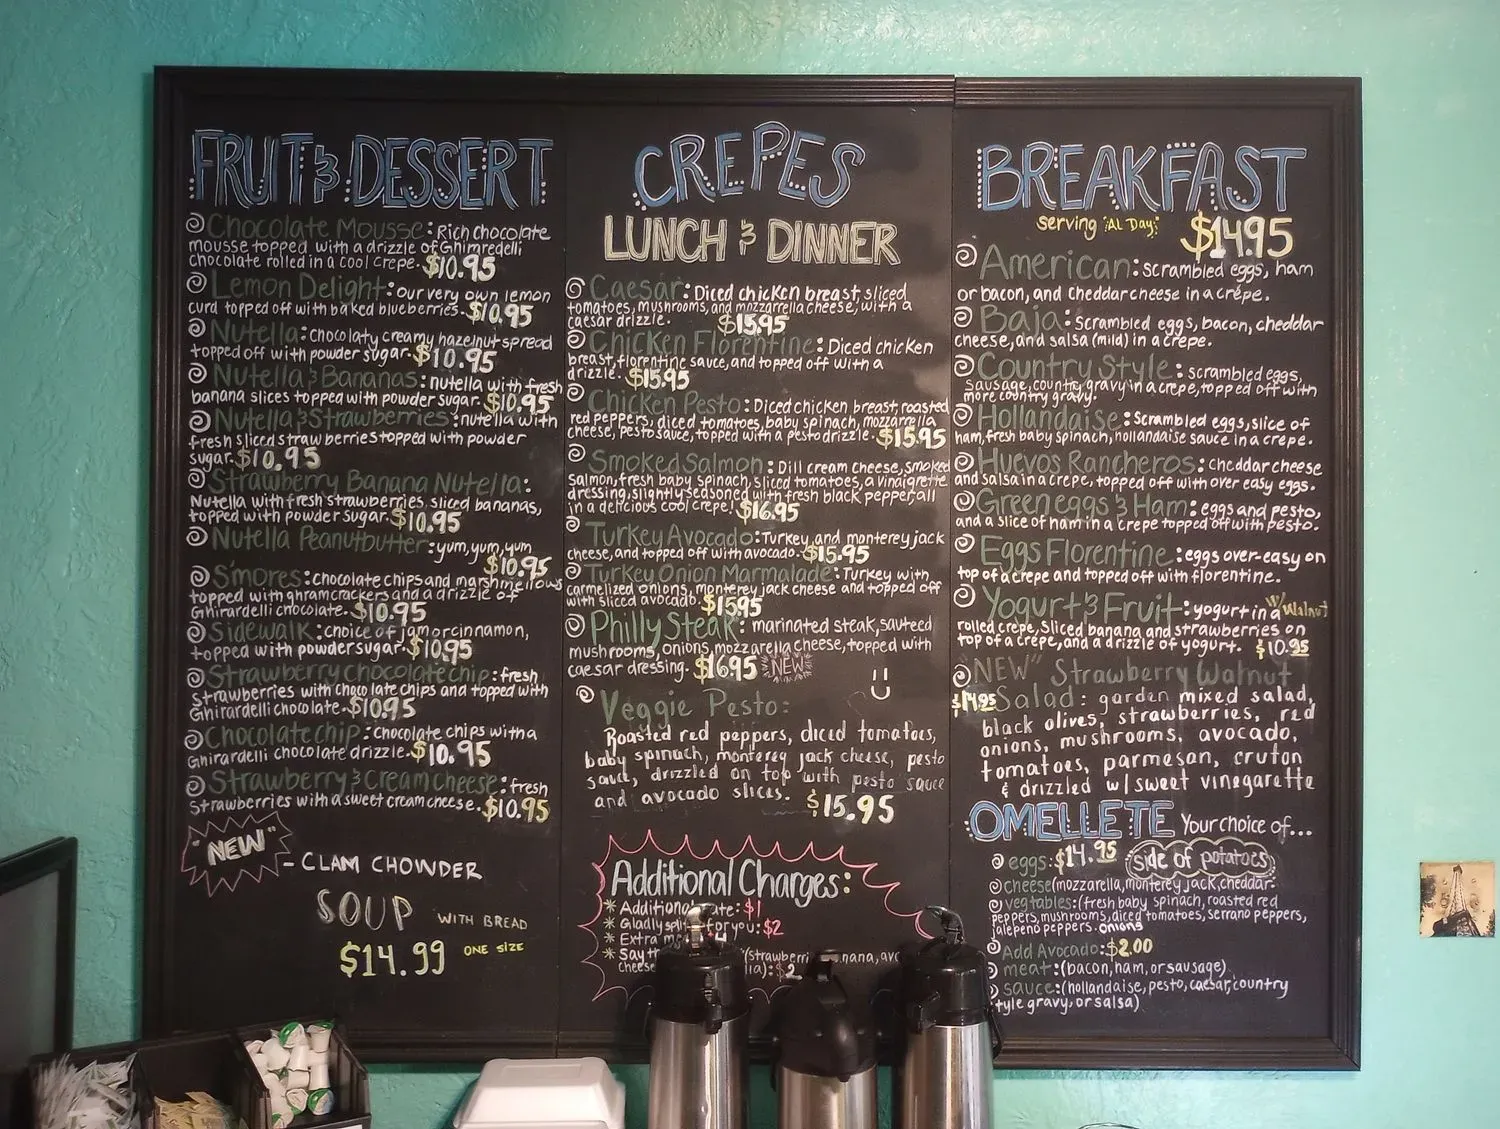 FRUIT & DESSERT
Chocolate Mousse: Rich chocolate
mousse topped with a drizzle of Ghimredelli
chocolate rolled in a cool crepe. $10.95
Lemon Delight: our very own lemon
curd topped off with baked blueberries. $10.95
Nutella: Chocolaty creamy hazelnut spread
topped off with powder sugar. $10.95
Nutella & Bananas: nutella with fresh
banana slices topped with powder sugar. $10.95
Nutella & Strawberries: nutella with
fresh sliced strawberries topped with powder
sugar. $10.95
Strawberry Banana Nutella:
Nutella with fresh strawberries, sliced bananas,
topped with powder sugar. $10.95
Nutella Peanutbutter: yum, yum, yum
$10.95
S'mores: chocolate chips and marshmellows
topped with ghramcrackers and a drizzle of
Ghirardelli chocolate. $10.95
Sidewalk: choice of jam or cinnamon,
topped with powder sugar. $10.95
Strawberry chocolate chip: fresh
strawberries with chocolate chips and topped with
Ghirardelli chocolate. $10.95
Chocolate chip: chocolate chips with a
Ghirardelli chocolate drizzle. $10.95
Strawberry & Creamcheese: fresh
strawberries with a sweet cream cheese. $10.95
"NEW"
- CLAM CHOWDER
SOUP WITH BREAD
$14.99 ONE SIZE
CREPES
LUNCH & DINNER
Caesar: Diced chicken breast, sliced
tomatoes, mushrooms, and mozzarrella cheese, with a
caesar drizzle. $15.95
Chicken Florentine: Diced chicken
breast, florentine sauce, and topped off with a
drizzle. $15.95
Chicken Pesto: Diced chicken breast, roasted
red peppers, diced tomatoes, baby spinach, mozzarrella
cheese, pesto sauce, topped with a pesto drizzle. $15.95
Smoked Salmon: Dill cream cheese, smoked
salmon, fresh baby spinach, sliced tomatoes, a vinaigrette
dressing, slightly seasoned with fresh black pepper, all
in a delicious cool crepe! $16.95
Turkey Avocado: Turkey and monterey jack
cheese, and topped off with avocado. $15.95
Turkey Onion Marmalade: Turkey with
carmelized onions, monterey jack cheese and topped off
with sliced avocado. $15.95
Philly Steak: marinated steak, sauteed
mushrooms, onions, mozzarella cheese, topped with
caesar dressing. $16.95 NEW
Veggie Pesto:
Roasted red peppers, diced tomatoes,
baby spinach, monterey jack cheese, pesto
sauce, drizzled on top with pesto sauce
and avocado slices. $15.95
Additional Charges:
* Additional ate: $1
* Gladly split for you: $2
* Extra
* Say
cheese
BREAKFAST
serving AL Day $14.95
American: scrambled eggs, ham
or bacon, and cheddar cheese in a crépe.
Baja: scrambled eggs, bacon, cheddar
cheese, and salsa (mild) in a crepe.
Country Style: scrambled eggs,
sausage, country gravy in a crepe, topped off with
more country gravy.
Hollandaise: Scrambled eggs, slice of
ham, fresh baby spinach, hollandaise sauce in a crepe.
Huevos Rancheros: cheddar cheese
and salsa in a crepe, topped off with over easy eggs.
Green eggs & Ham: eggs and pesto,
and a slice of ham in a crepe topped off with pesto.
Eggs Florentine: eggs over-easy on
top of a crepe and topped off with florentine.
Yogurt & Fruit: yogurt in a w/ Walnut
rolled crepe, sliced banana and strawberries on
top of a crepe, and a drizzle of yogurt. $10.95
"NEW" Strawberry Walnut
$14.95 Salad: garden mixed salad,
black olives, strawberries, red
onions, mushrooms, avocado,
tomatoes, parmesan, cruton
& drizzled w/ sweet vinegarette
OMELLETE Your choice of...
eggs: $14.95 side of potatoes
cheese (mozzarella, monterey jack, cheddar.
vegtables: (fresh baby spinach, roasted red
peppers, mushrooms, diced tomatoes, serrano peppers,
jalepeno peppers. onions
Add Avocado: $2.00
meat: (bacon, ham, or sausage)
sauce: (hollandaise, pesto, caesar, country
tyle gravy, or salsa)